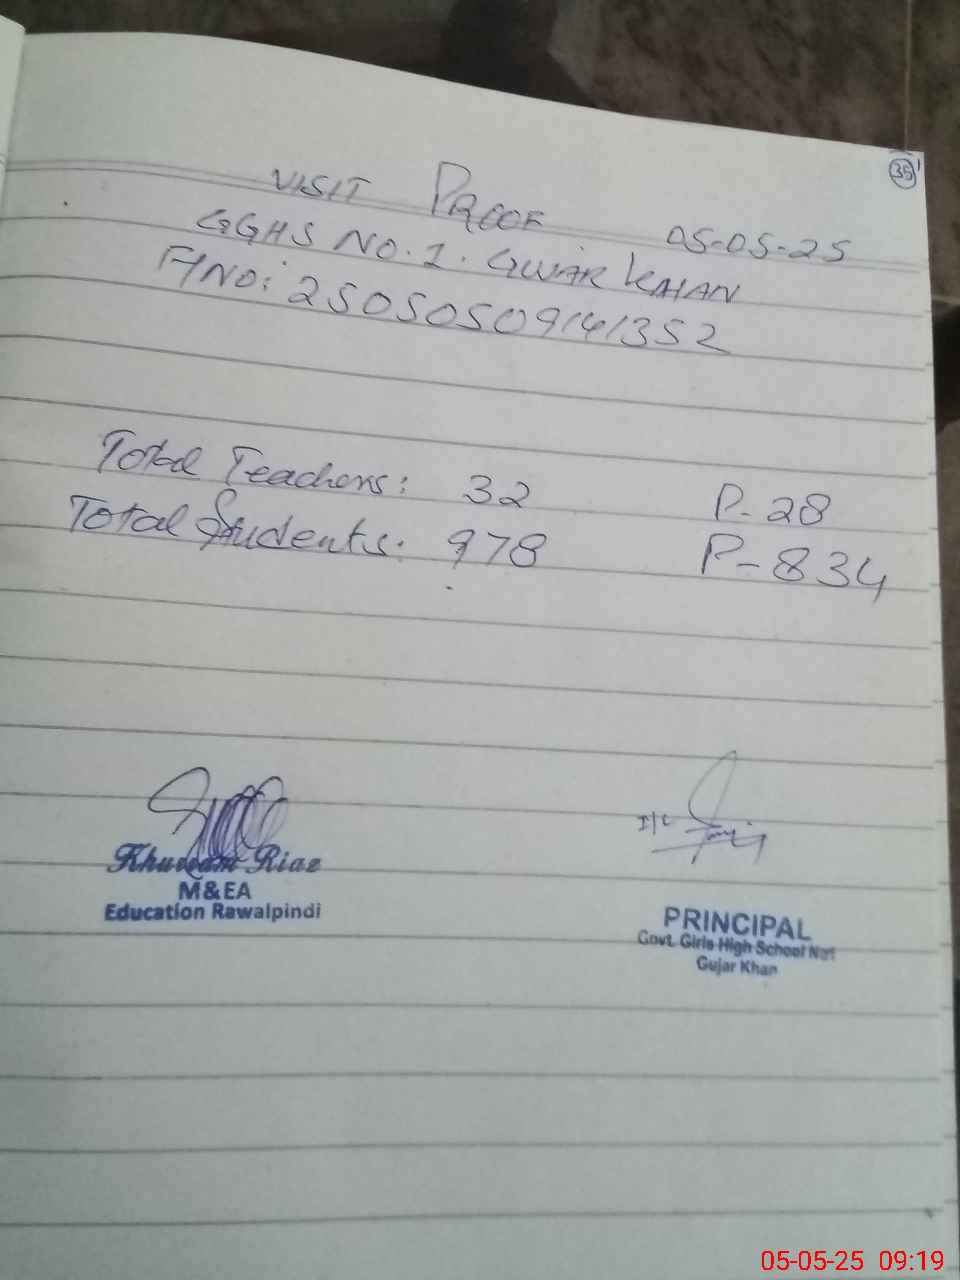 35
VISIT PROOF 05-05-25
GGHS NO. 1. GUJAR KHAN
F/NO: 25050509141352
Total Teachers: 32 P-28
Total Students: 978 P-834
I/C
Khurram Riaz
M&EA
Education Rawalpindi
PRINCIPAL
Govt. Girls High School No1
Gujar Khan
05-05-25 09:19